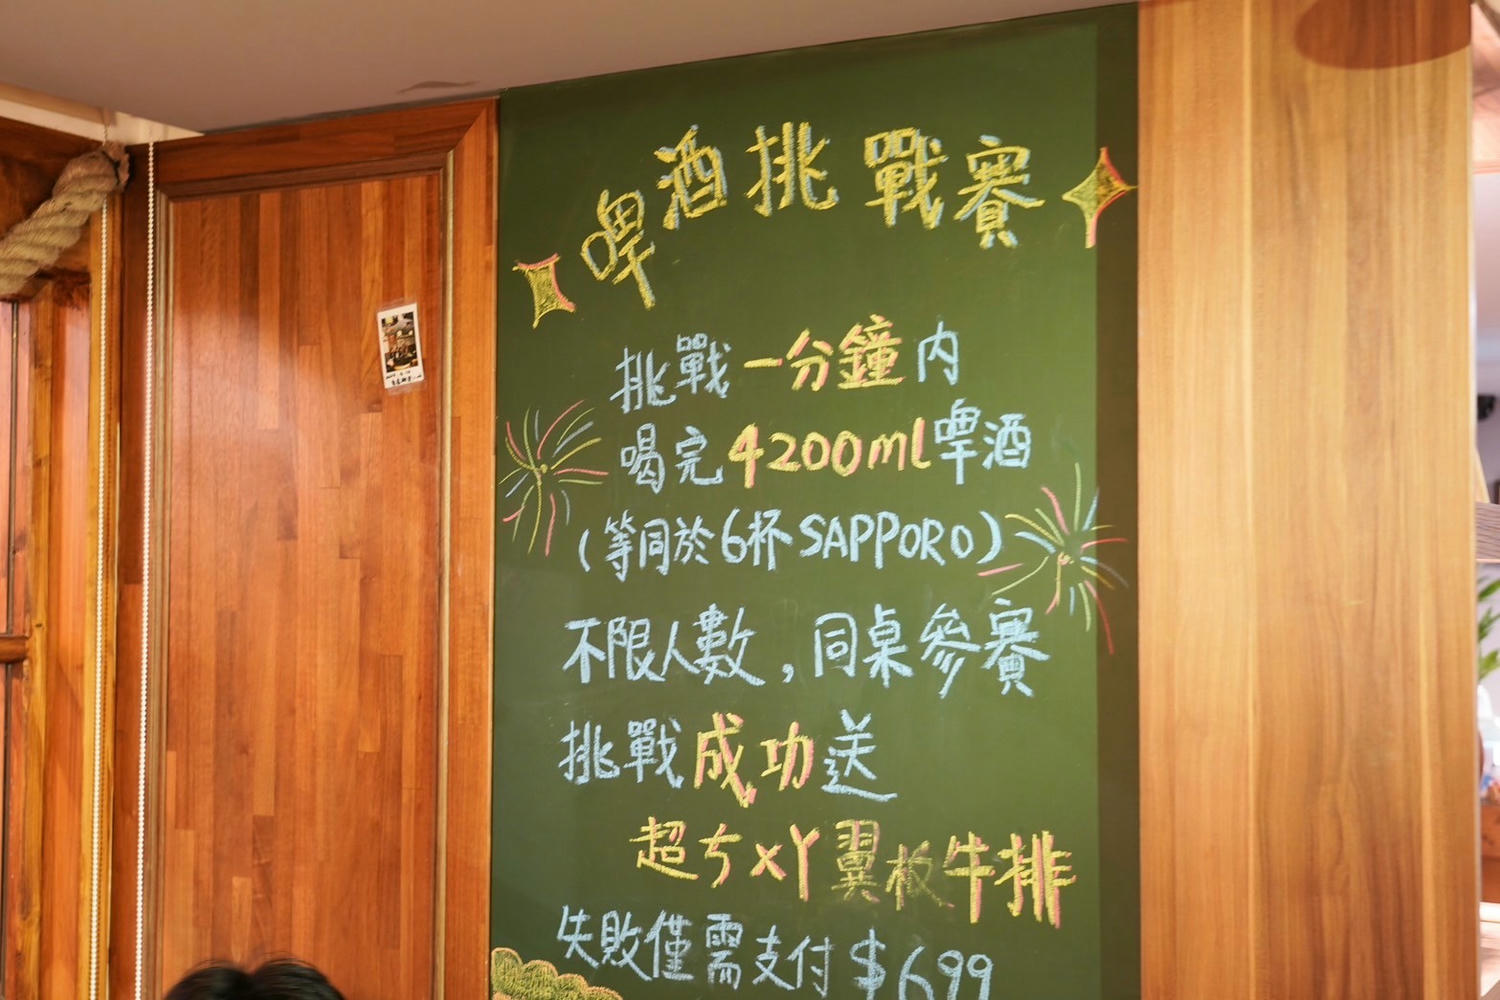 啤酒挑戰賽
挑戰一分鐘內
喝完4200ml啤酒
(等同於6杯SAPPORO)
不限人數，同桌參賽
挑戰成功送
超ㄘㄨㄚ翼板牛排
失敗僅需支付$699